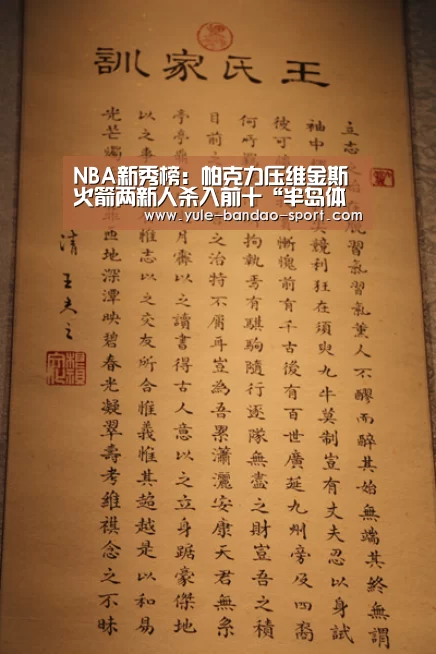 王氏家訓
立志之脫習氣習氣薰人不醪而醉其始無端其終無謂
袖中尖競利狂在須臾九牛莫制豈有丈夫忍以身試
彼可慚愧前有千古後有百世廣延九州旁及四裔
何所拘執焉有騏駒隨行逐隊無盡之財豈吾之積
目前之之治特不屑耳豈為吾累瀟灑安康天君無系
亭亭月霽以之讀書得古人意以之立身踞豪傑地
以之事惟志以之交友所合惟義惟其超越是以和易
光芒燭匝地深潭映碧春光凝翠壽考維祺念之不昧
清 王夫之
NBA新秀榜：帕克力压维金斯
火箭两新人杀入前十“半岛体
www.yule-bandao-sport.com